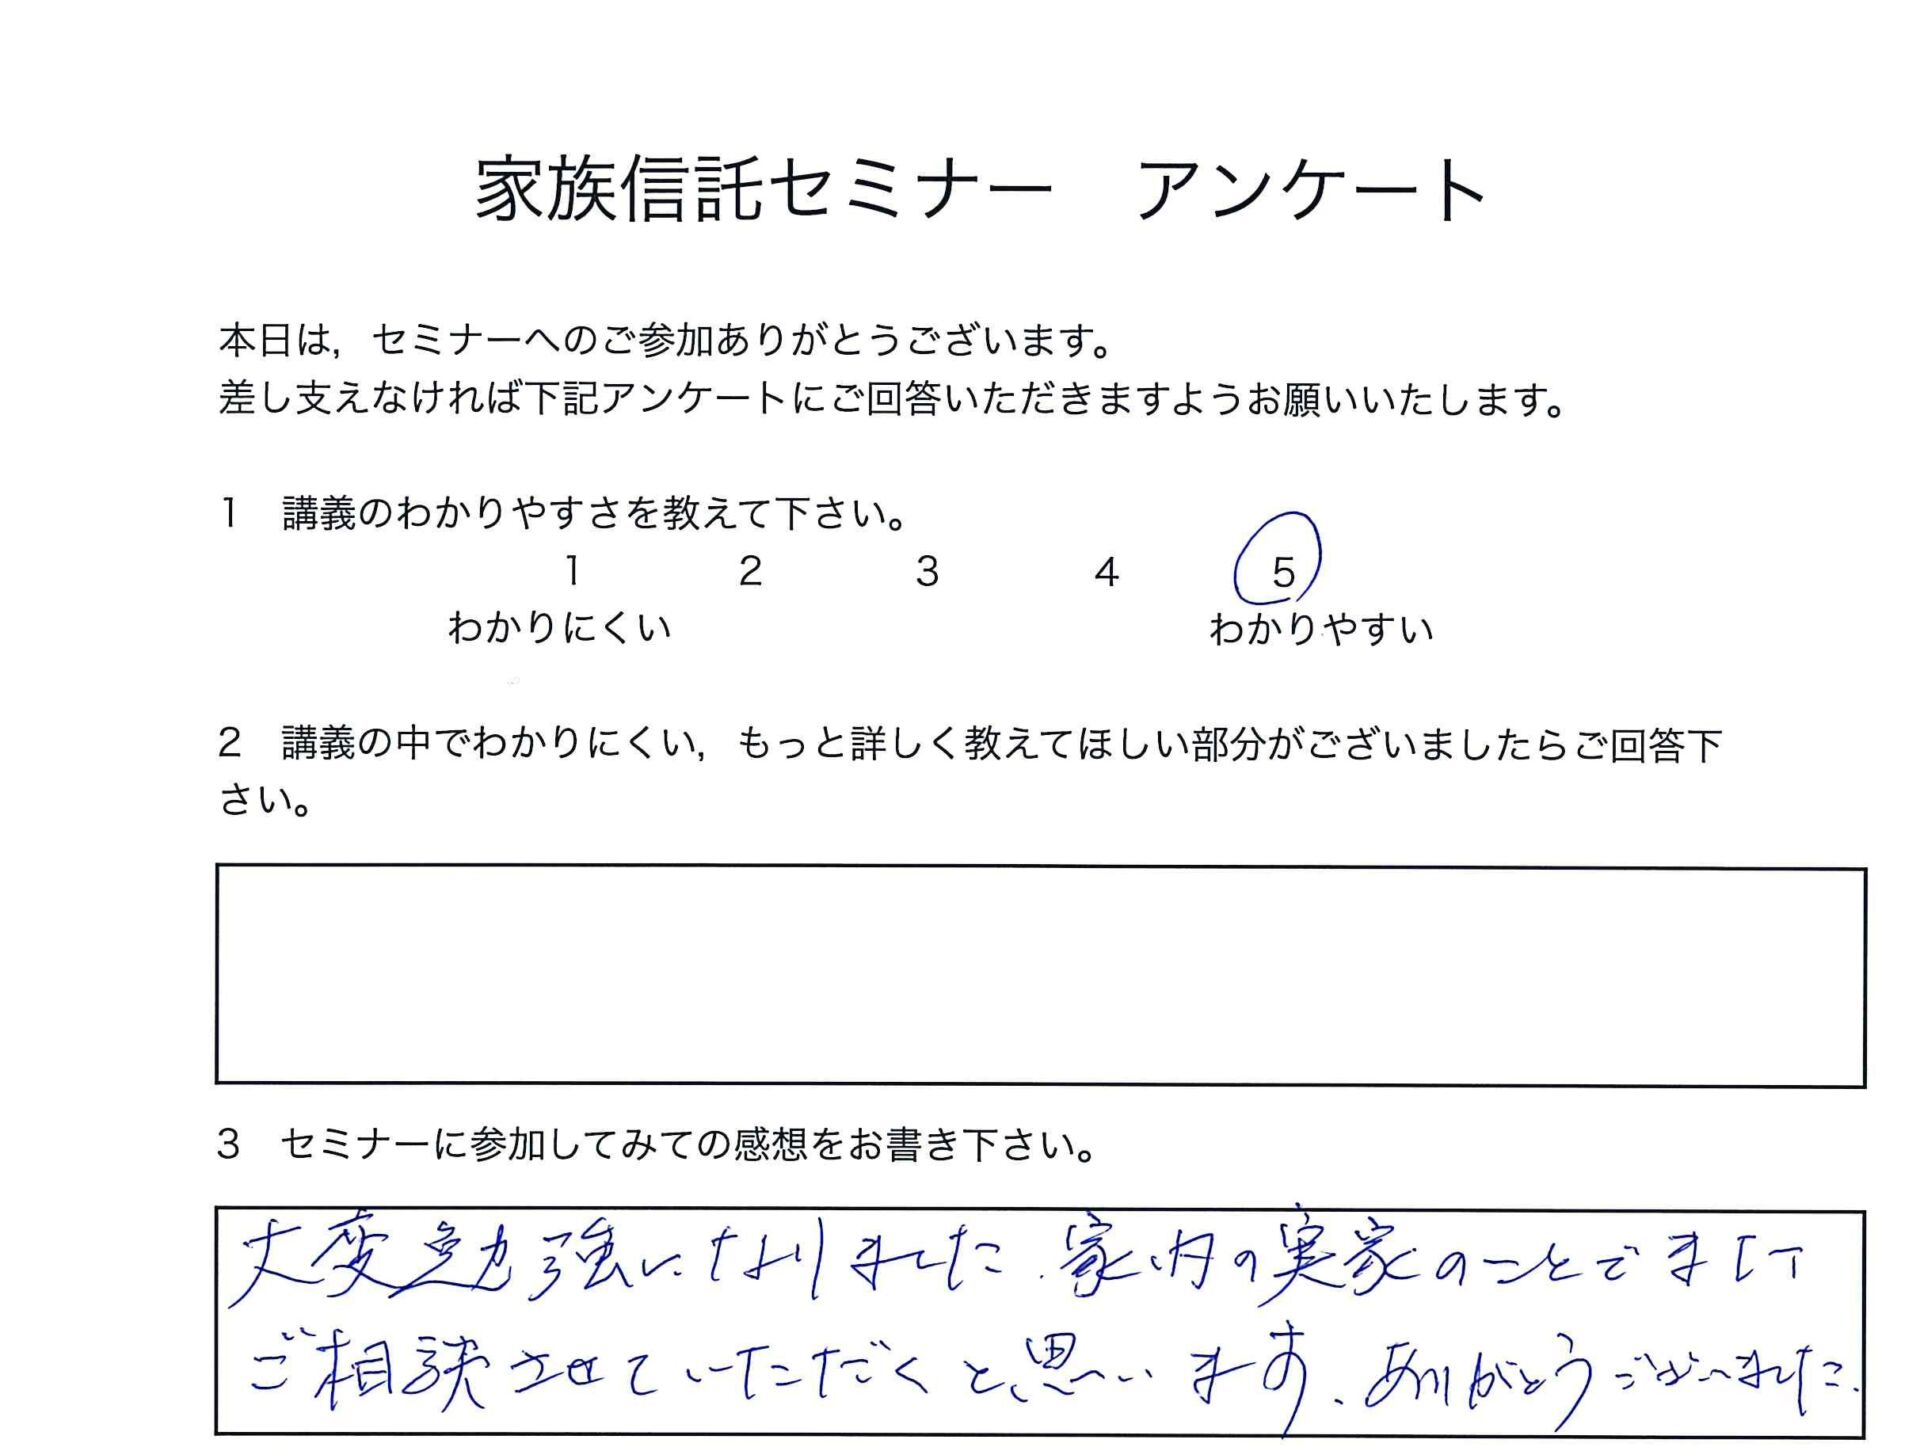 家族信託セミナー　アンケート
本日は，セミナーへのご参加ありがとうございます。
差し支えなければ下記アンケートにご回答いただきますようお願いいたします。
1　講義のわかりやすさを教えて下さい。
1 2 3 4 5
わかりにくい わかりやすい
2　講義の中でわかりにくい，もっと詳しく教えてほしい部分がございましたらご回答下
さい。
3　セミナーに参加してみての感想をお書き下さい。
大変勉強になりました．家内の実家のことで
ご相談させていただくと思います．ありがとうございました．